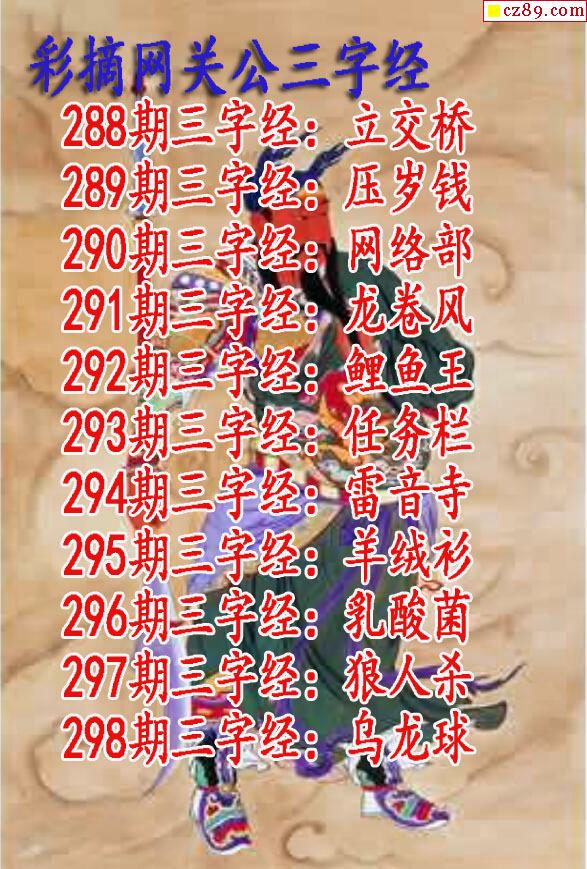 cz89.com
彩摘网关公三字经
288期三字经：立交桥
289期三字经：压岁钱
290期三字经：网络部
291期三字经：龙卷风
292期三字经：鲤鱼王
293期三字经：任务栏
294期三字经：雷音寺
295期三字经：羊绒衫
296期三字经：乳酸菌
297期三字经：狼人杀
298期三字经：乌龙球